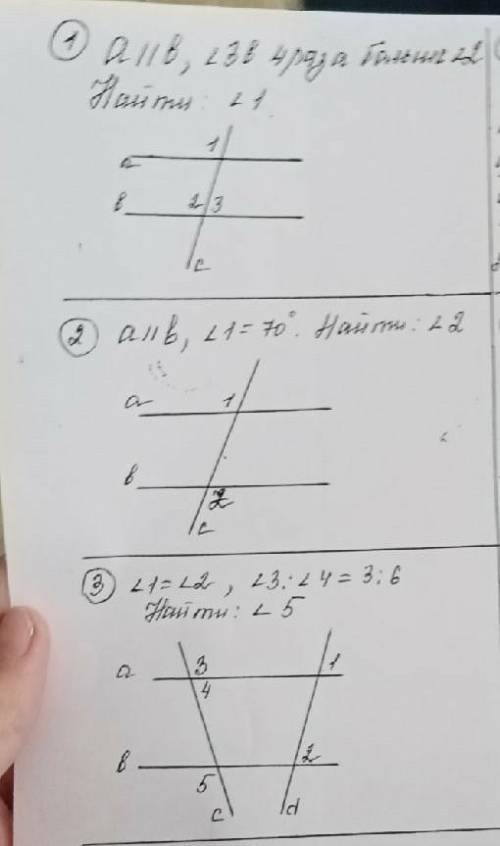 1 a || b, ∠3 в 4 раза больше ∠2
Найти: ∠1
1
a
b 2 3
c
2 a || b, ∠1 = 70°. Найти: ∠2
a 1
b
2
c
3 ∠1 = ∠2, ∠3 : ∠4 = 3 : 6
Найти: ∠5
a 3 1
4
b 2
5
c d